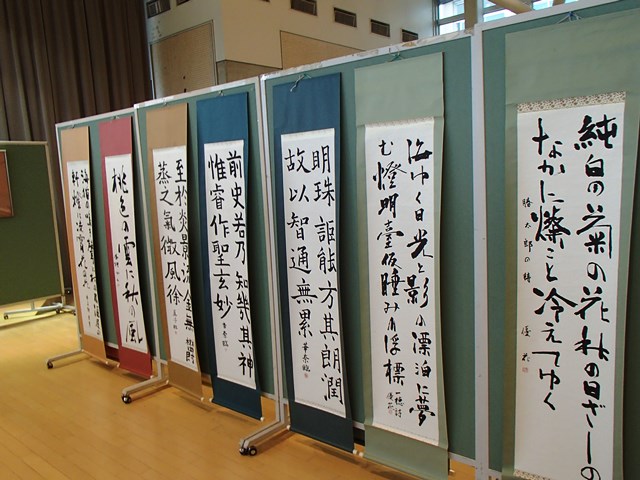 純白の菊の花秋の日ざしの
なかに燦こと冷えてゆく
海ゆく日光と影の漂泊に夢
む燈明臺仮睡みの浮標
一穂詩
明珠詎能方其朗潤
故以智通無累
前史若乃知幾其神
惟睿作聖玄妙
至於炎景流金無鬱
蒸之氣微風徐
桃色の雲に秋の風